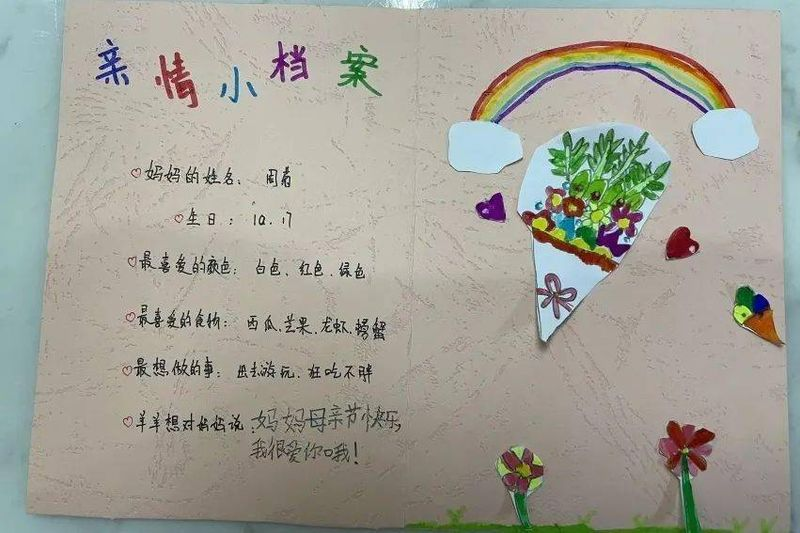 亲情小档案
妈妈的姓名: 周
生日: 10.17
最喜爱的颜色: 白色、红色、绿色
最喜爱的食物: 西瓜、芒果、龙虾、螃蟹
最想做的事: 出去游玩、狂吃不胖
羊羊想对妈妈说 妈妈母亲节快乐,
我很爱你哦!